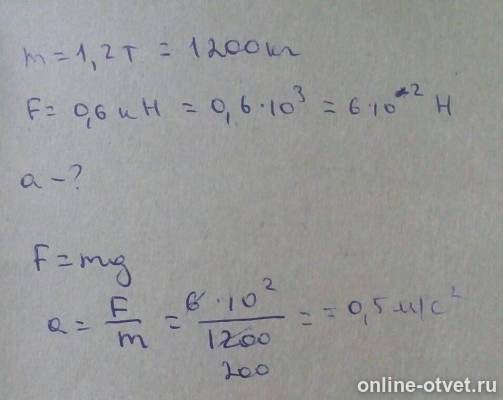 m = 1,2 т = 1200 кг
F = 0,6 кН = 0,6·10³ = 6·10² Н
a - ?
F = mg
a = F/m = 6·10²/1200 = = 0,5 м/с²
200
online-otvet.ru